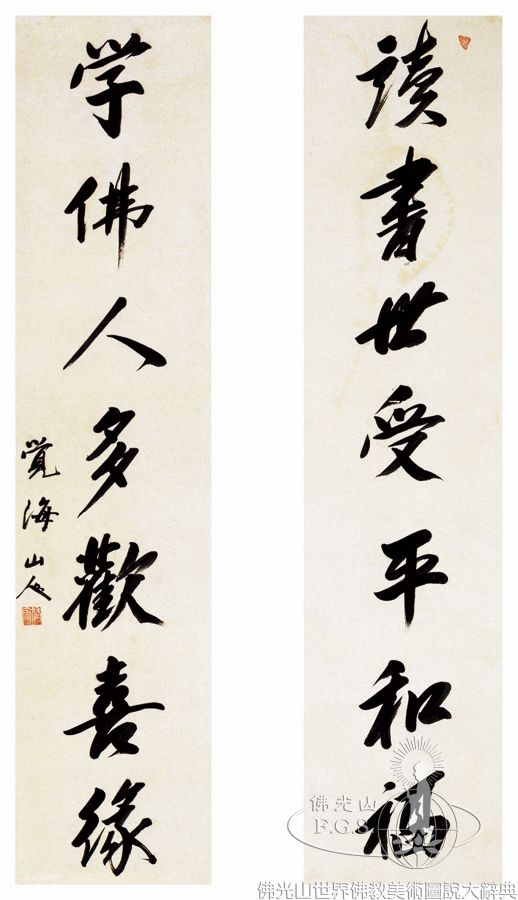 讀書世受平和福
学佛人多歡喜緣
覺海山人
佛光山
F.G.S
佛光山世界佛教美術圖說大辭典